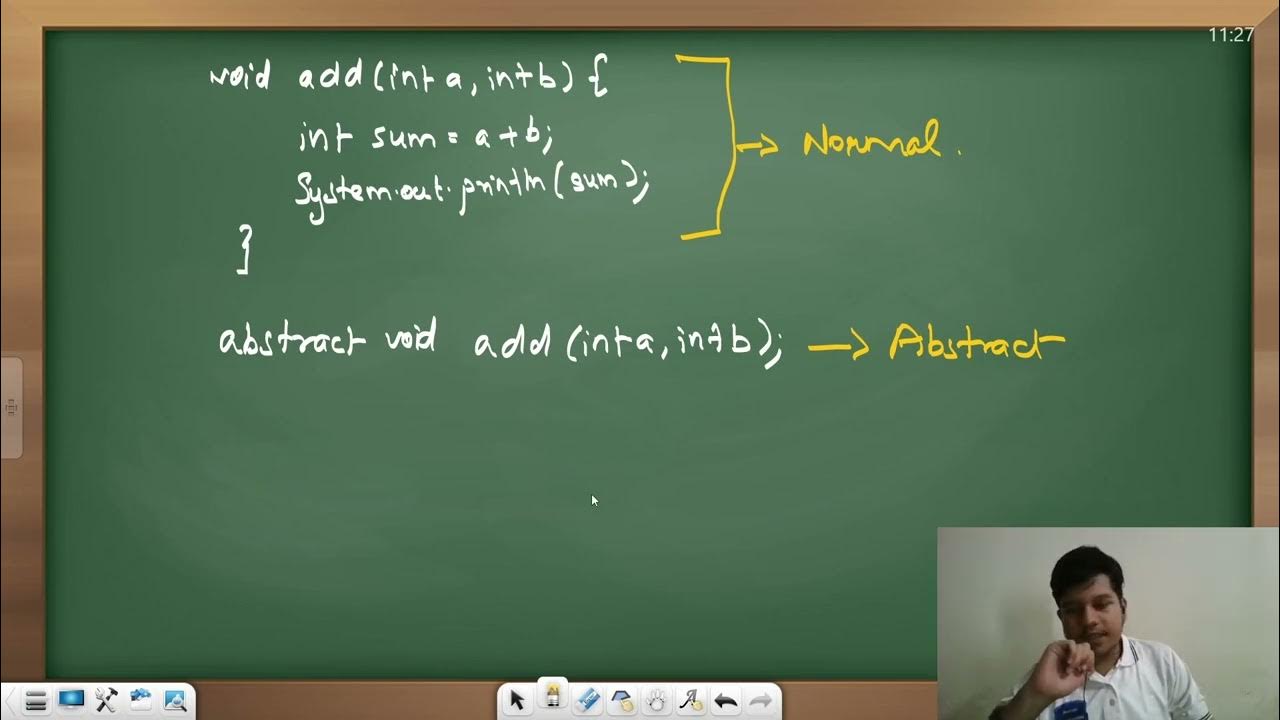 11:27
void add(int a, int b) {
int sum = a + b;
System.out.println(sum);
}
→ Normal.
abstract void add(int a, int b); → Abstract